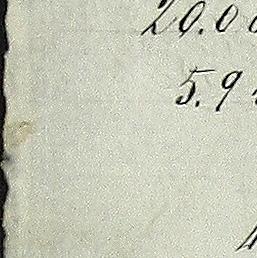 20.0
5.9